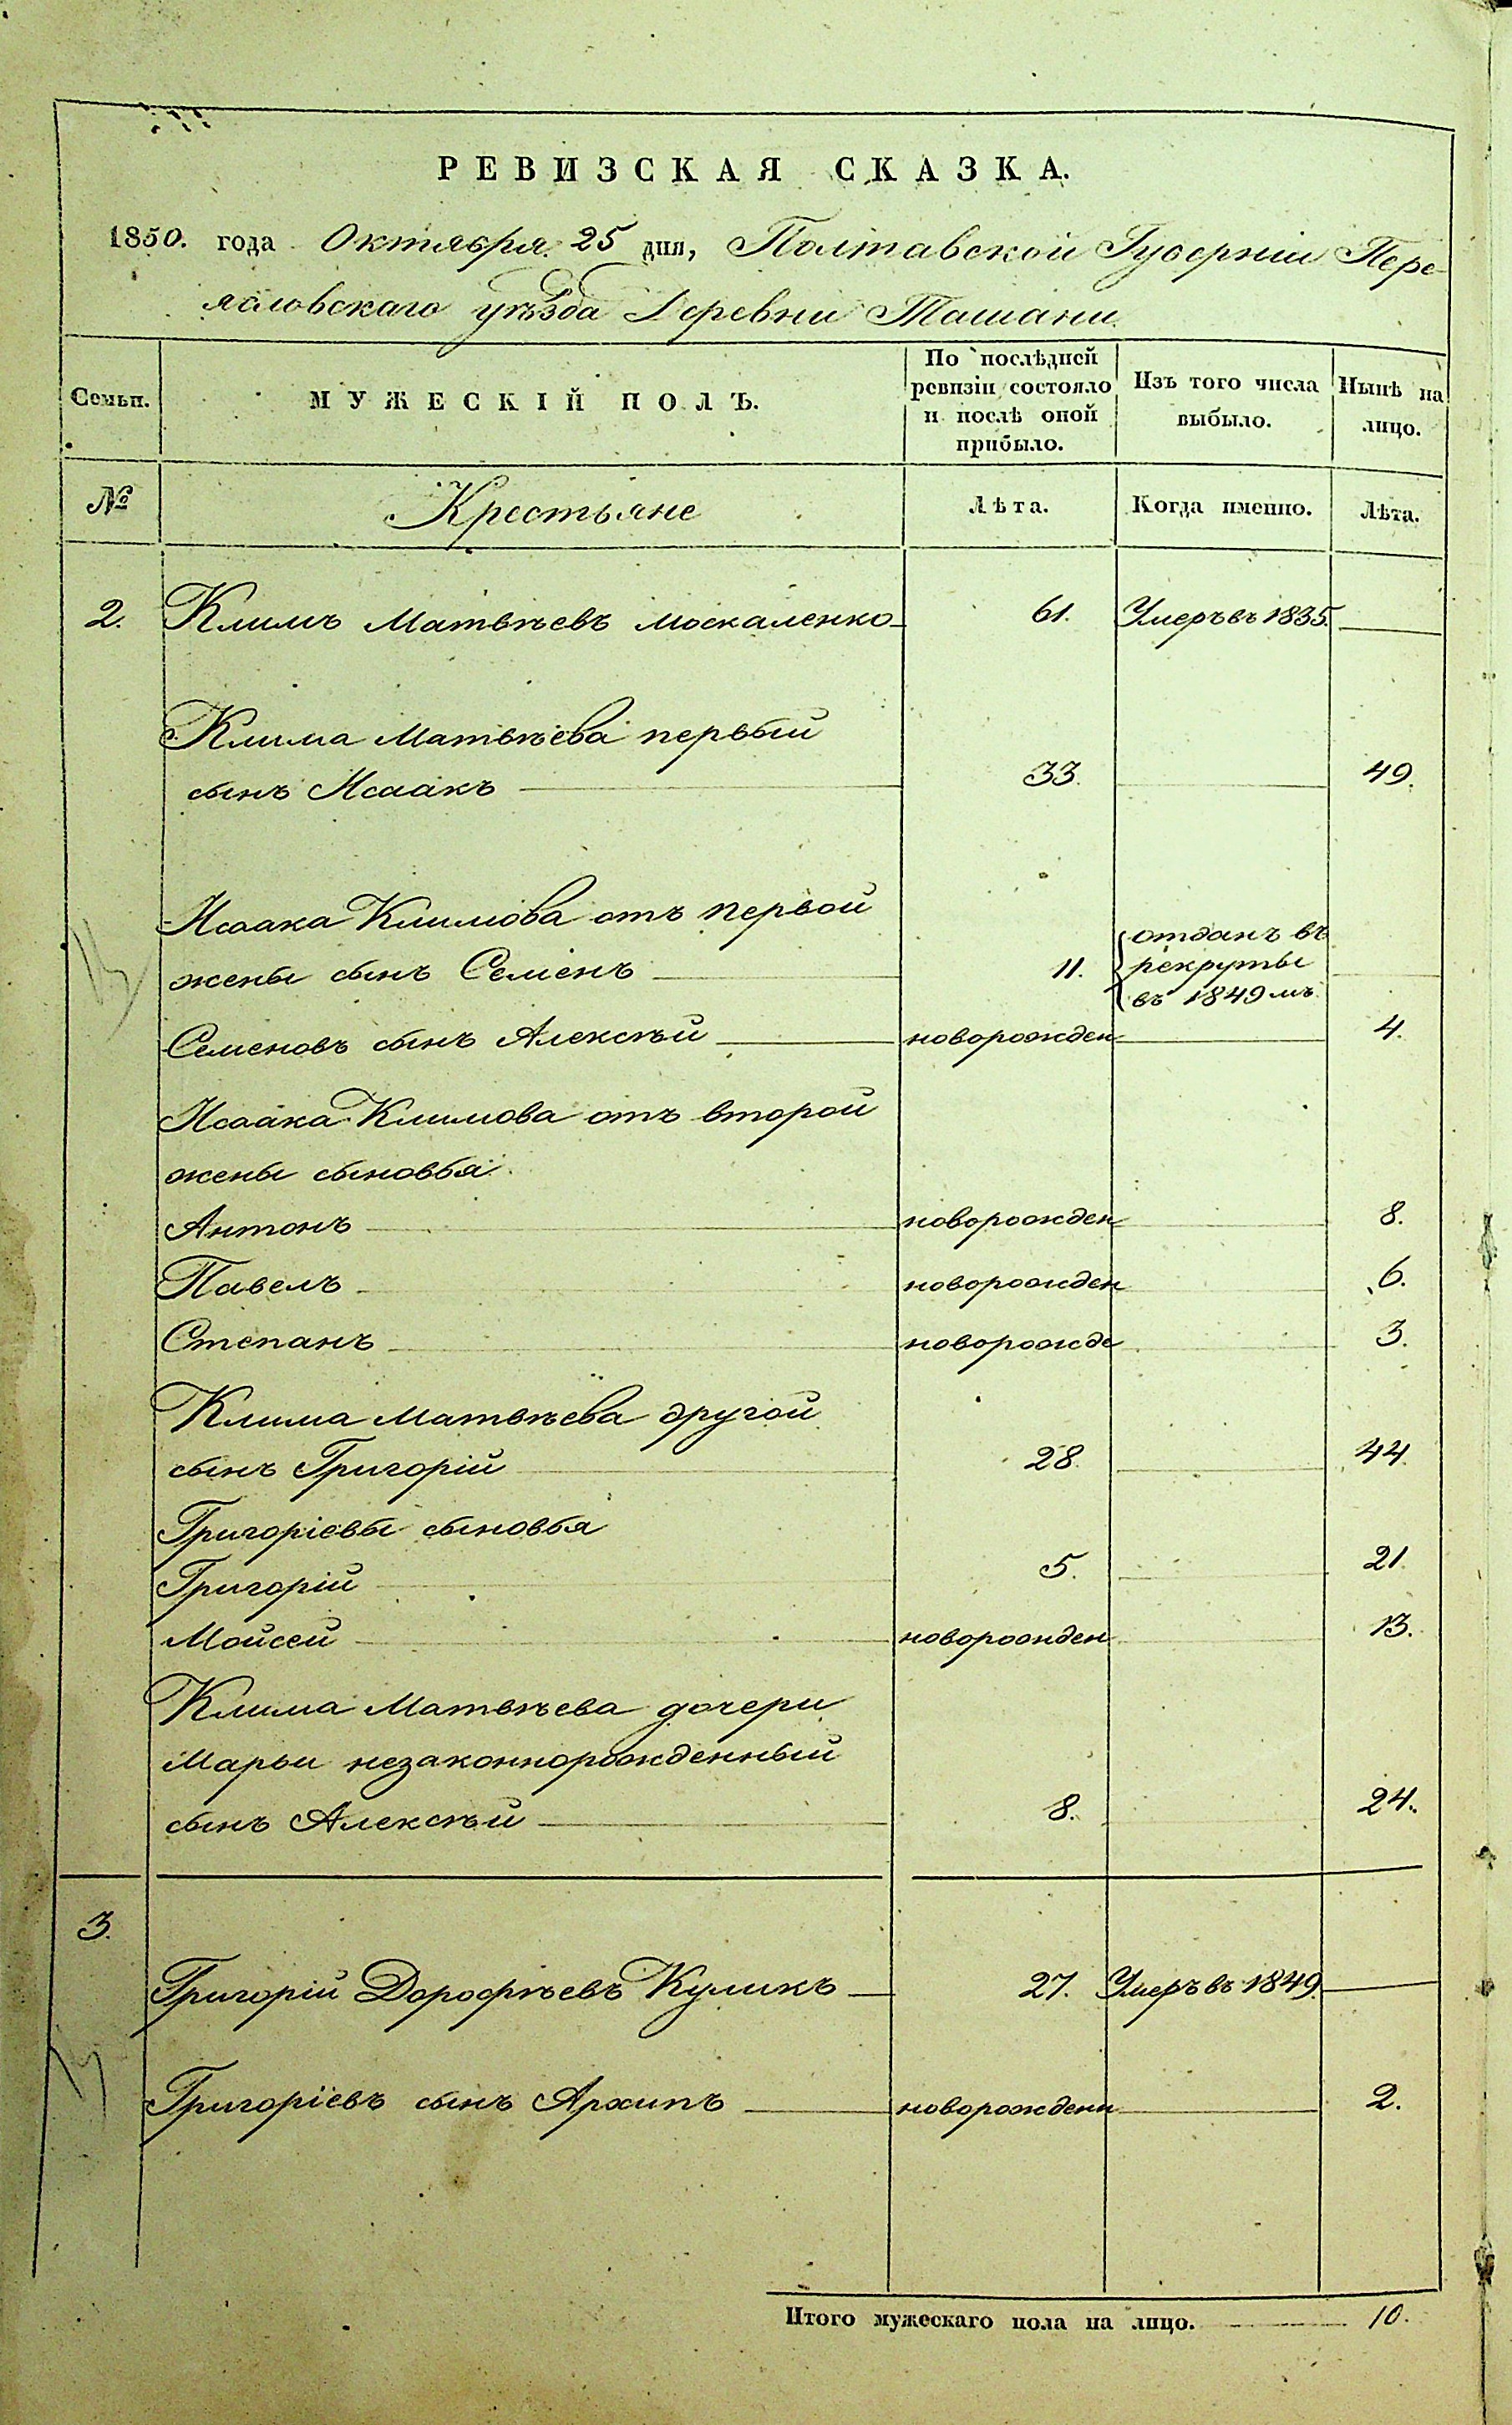 РЕВИЗСКАЯ СКАЗКА.
1850. года Октября 25 дня, Полтавской Губерніи Пере-
яславскаго уѣзда Деревни Ташани
Семьи. МУЖЕСКІЙ ПОЛЪ. По послѣдней ревизіи состояло и послѣ оной прибыло. Изъ того числа выбыло. Нынѣ на лицо.
№ Крестьяне Лѣта. Когда именно. Лѣта.
2. Климъ Матвѣевъ Москаленко 61. Умеръ въ 1835.
Клима Матвѣева первый
сынъ Исаакъ 33. 49.
Исаака Климова отъ первой
жены сынъ Семенъ 11. отданъ въ рекруты въ 1849 мъ
Семеновъ сынъ Алексѣй новорожден 4.
Исаака Климова отъ второй
жены сыновья
Антонъ новорожден 8.
Павелъ новорожден 6.
Степанъ новорожде 3.
Клима Матвѣева другой
сынъ Григорій 28. 44.
Григоріевы сыновья
Григорій 5. 21.
Мойсей новорожден 13.
Клима Матвѣева дочери
Марьи незаконнорожденный
сынъ Алексѣй 8. 24.
3.
Григорій Дорофѣевъ Куликъ 27. Умеръ въ 1849.
Григоріевъ сынъ Архипъ новорожденн 2.
Итого мужескаго пола на лицо. 10.